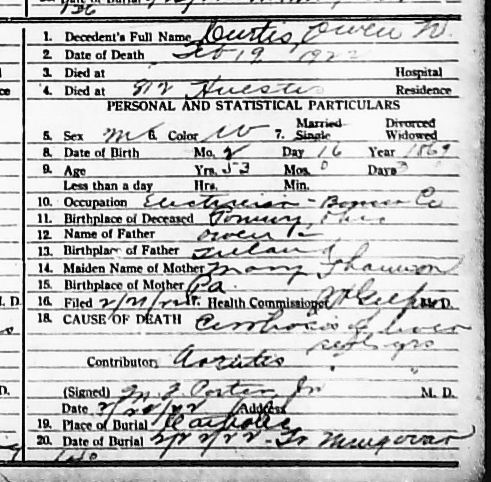 1. Decedent's Full Name Curtis, Owen W.
2. Date of Death Feb 19 1922
3. Died at Hospital
4. Died at 812 Residence
PERSONAL AND STATISTICAL PARTICULARS
5. Sex M 6. Color W 7. Married Single Divorced Widowed
8. Date of Birth Mo. 2 Day 16 Year 1869
9. Age Yrs. 53 Mos. 0 Days 3
Less than a day Hrs. Min.
10. Occupation Electrician - Co
11. Birthplace of Deceased Ohio
12. Name of Father Owen
13. Birthplace of Father Ireland
14. Maiden Name of Mother Mary
15. Birthplace of Mother Pa.
16. Filed 2/21/22 17. Health Commissioner M. D.
18. CAUSE OF DEATH Cirrhosis of liver
yrs
Contributory
(Signed) Porter Jr M. D.
Date 2/20/22 Address
19. Place of Burial Catholic
20. Date of Burial 2/22/22 -